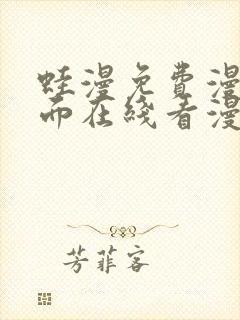 蛙漫免费漫
而在线看漫
芳菲客